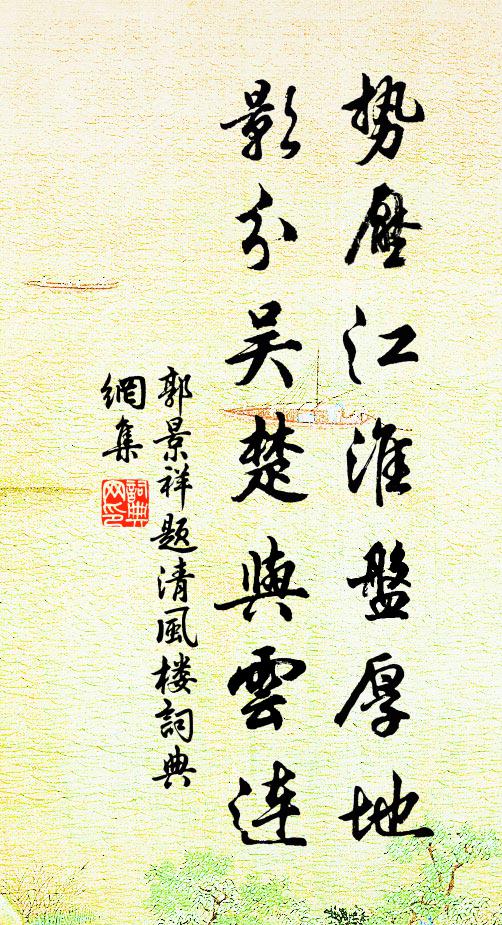 势壓江淮盤厚地
影分吴楚與雲連
郭景祥题清風楼詞典
網集
詞典网印